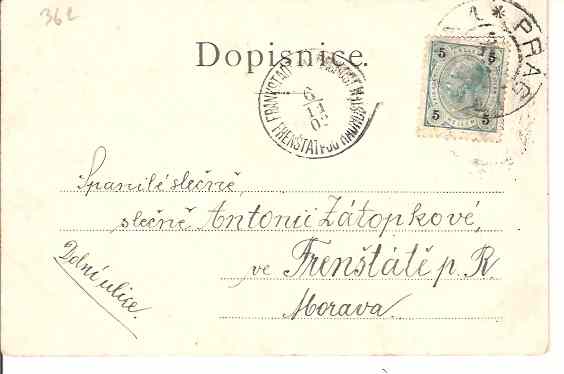 36
Dopisnice.
PRAG
5 5
5 5
FRANKSTADT
6
11
02
FRENŠTÁT POD RADHOŠTĚM
Spanilé slečně,
slečně Antonii Zátopkové,
ve Frenštátě p. R.
Morava.
Dolní ulice.